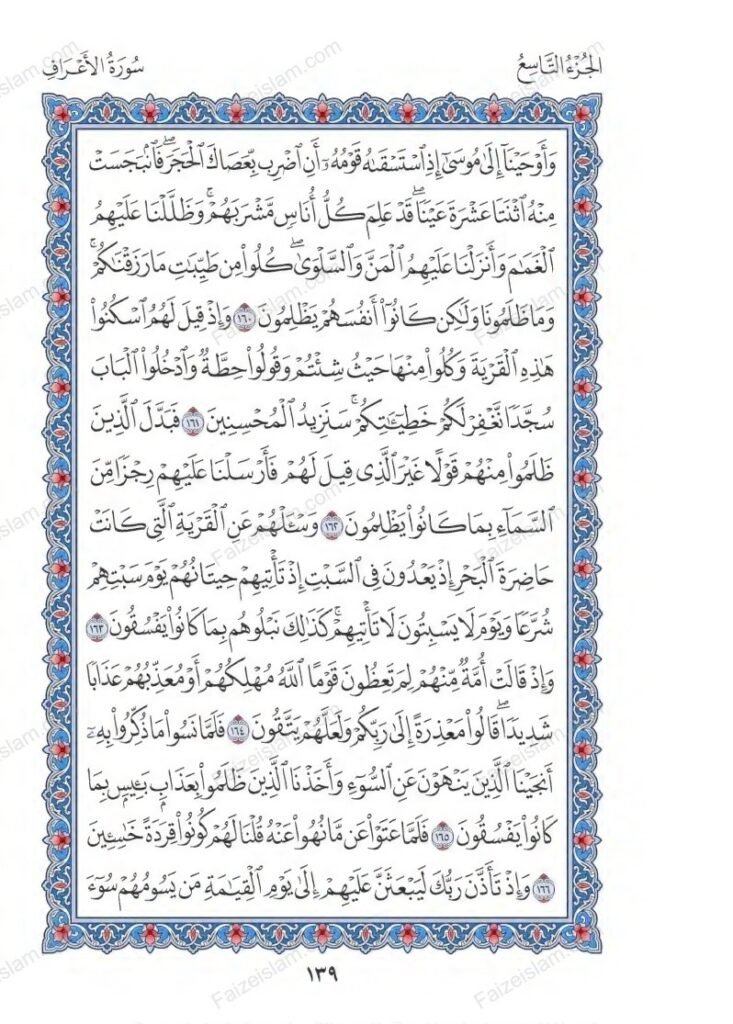 الجُزْءُ التَّاسِعُ
سُورَةُ الأَعْرَافِ
وَأَوْحَيْنَآ إِلَىٰ مُوسَىٰٓ إِذِ ٱسْتَسْقَىٰهُ قَوْمُهُۥٓ أَنِ ٱضْرِب بِّعَصَاكَ ٱلْحَجَرَۖ فَٱنۢبَجَسَتْ
مِنْهُ ٱثْنَتَا عَشْرَةَ عَيْنًاۖ قَدْ عَلِمَ كُلُّ أُنَاسٍ مَّشْرَبَهُمْۚ وَظَلَّلْنَا عَلَيْهِمُ
ٱلْغَمَـٰمَ وَأَنزَلْنَا عَلَيْهِمُ ٱلْمَنَّ وَٱلسَّلْوَىٰۖ كُلُوا۟ مِن طَيِّبَـٰتِ مَا رَزَقْنَـٰكُمْۚ
وَمَا ظَلَمُونَا وَلَـٰكِن كَانُوٓا۟ أَنفُسَهُمْ يَظْلِمُونَ ١٦٠ وَإِذْ قِيلَ لَهُمُ ٱسْكُنُوا۟
هَـٰذِهِ ٱلْقَرْيَةَ وَكُلُوا۟ مِنْهَا حَيْثُ شِئْتُمْ وَقُولُوا۟ حِطَّةٌ وَٱدْخُلُوا۟ ٱلْبَابَ
سُجَّدًا نَّغْفِرْ لَكُمْ خَطِيٓـَٔـٰتِكُمْۚ سَنَزِيدُ ٱلْمُحْسِنِينَ ١٦١ فَبَدَّلَ ٱلَّذِينَ
ظَلَمُوا۟ مِنْهُمْ قَوْلًا غَيْرَ ٱلَّذِى قِيلَ لَهُمْ فَأَرْسَلْنَا عَلَيْهِمْ رِجْزًا مِّنَ
ٱلسَّمَآءِ بِمَا كَانُوا۟ يَظْلِمُونَ ١٦٢ وَسْـَٔلْهُمْ عَنِ ٱلْقَرْيَةِ ٱلَّتِى كَانَتْ
حَاضِرَةَ ٱلْبَحْرِ إِذْ يَعْدُونَ فِى ٱلسَّبْتِ إِذْ تَأْتِيهِمْ حِيتَانُهُمْ يَوْمَ سَبْتِهِمْ
شُرَّعًا وَيَوْمَ لَا يَسْبِتُونَ لَا تَأْتِيهِمْۚ كَذَٰلِكَ نَبْلُوهُم بِمَا كَانُوا۟ يَفْسُقُونَ ١٦٣
وَإِذْ قَالَتْ أُمَّةٌ مِّنْهُمْ لِمَ تَعِظُونَ قَوْمًا ٱللَّهُ مُهْلِكُهُمْ أَوْ مُعَذِّبُهُمْ عَذَابًا
شَدِيدًاۖ قَالُوا۟ مَعْذِرَةً إِلَىٰ رَبِّكُمْ وَلَعَلَّهُمْ يَتَّقُونَ ١٦٤ فَلَمَّا نَسُوا۟ مَا ذُكِّرُوا۟ بِهِۦٓ
أَنجَيْنَا ٱلَّذِينَ يَنْهَوْنَ عَنِ ٱلسُّوٓءِ وَأَخَذْنَا ٱلَّذِينَ ظَلَمُوا۟ بِعَذَابٍۭ بَـِٔيسٍۭ بِمَا
كَانُوا۟ يَفْسُقُونَ ١٦٥ فَلَمَّا عَتَوْا۟ عَن مَّا نُهُوا۟ عَنْهُ قُلْنَا لَهُمْ كُونُوا۟ قِرَدَةً خَـٰسِـِٔينَ
١٦٦ وَإِذْ تَأَذَّنَ رَبُّكَ لَيَبْعَثَنَّ عَلَيْهِمْ إِلَىٰ يَوْمِ ٱلْقِيَـٰمَةِ مَن يَسُومُهُمْ سُوٓءَ
١٣٩
Faizeislam.com